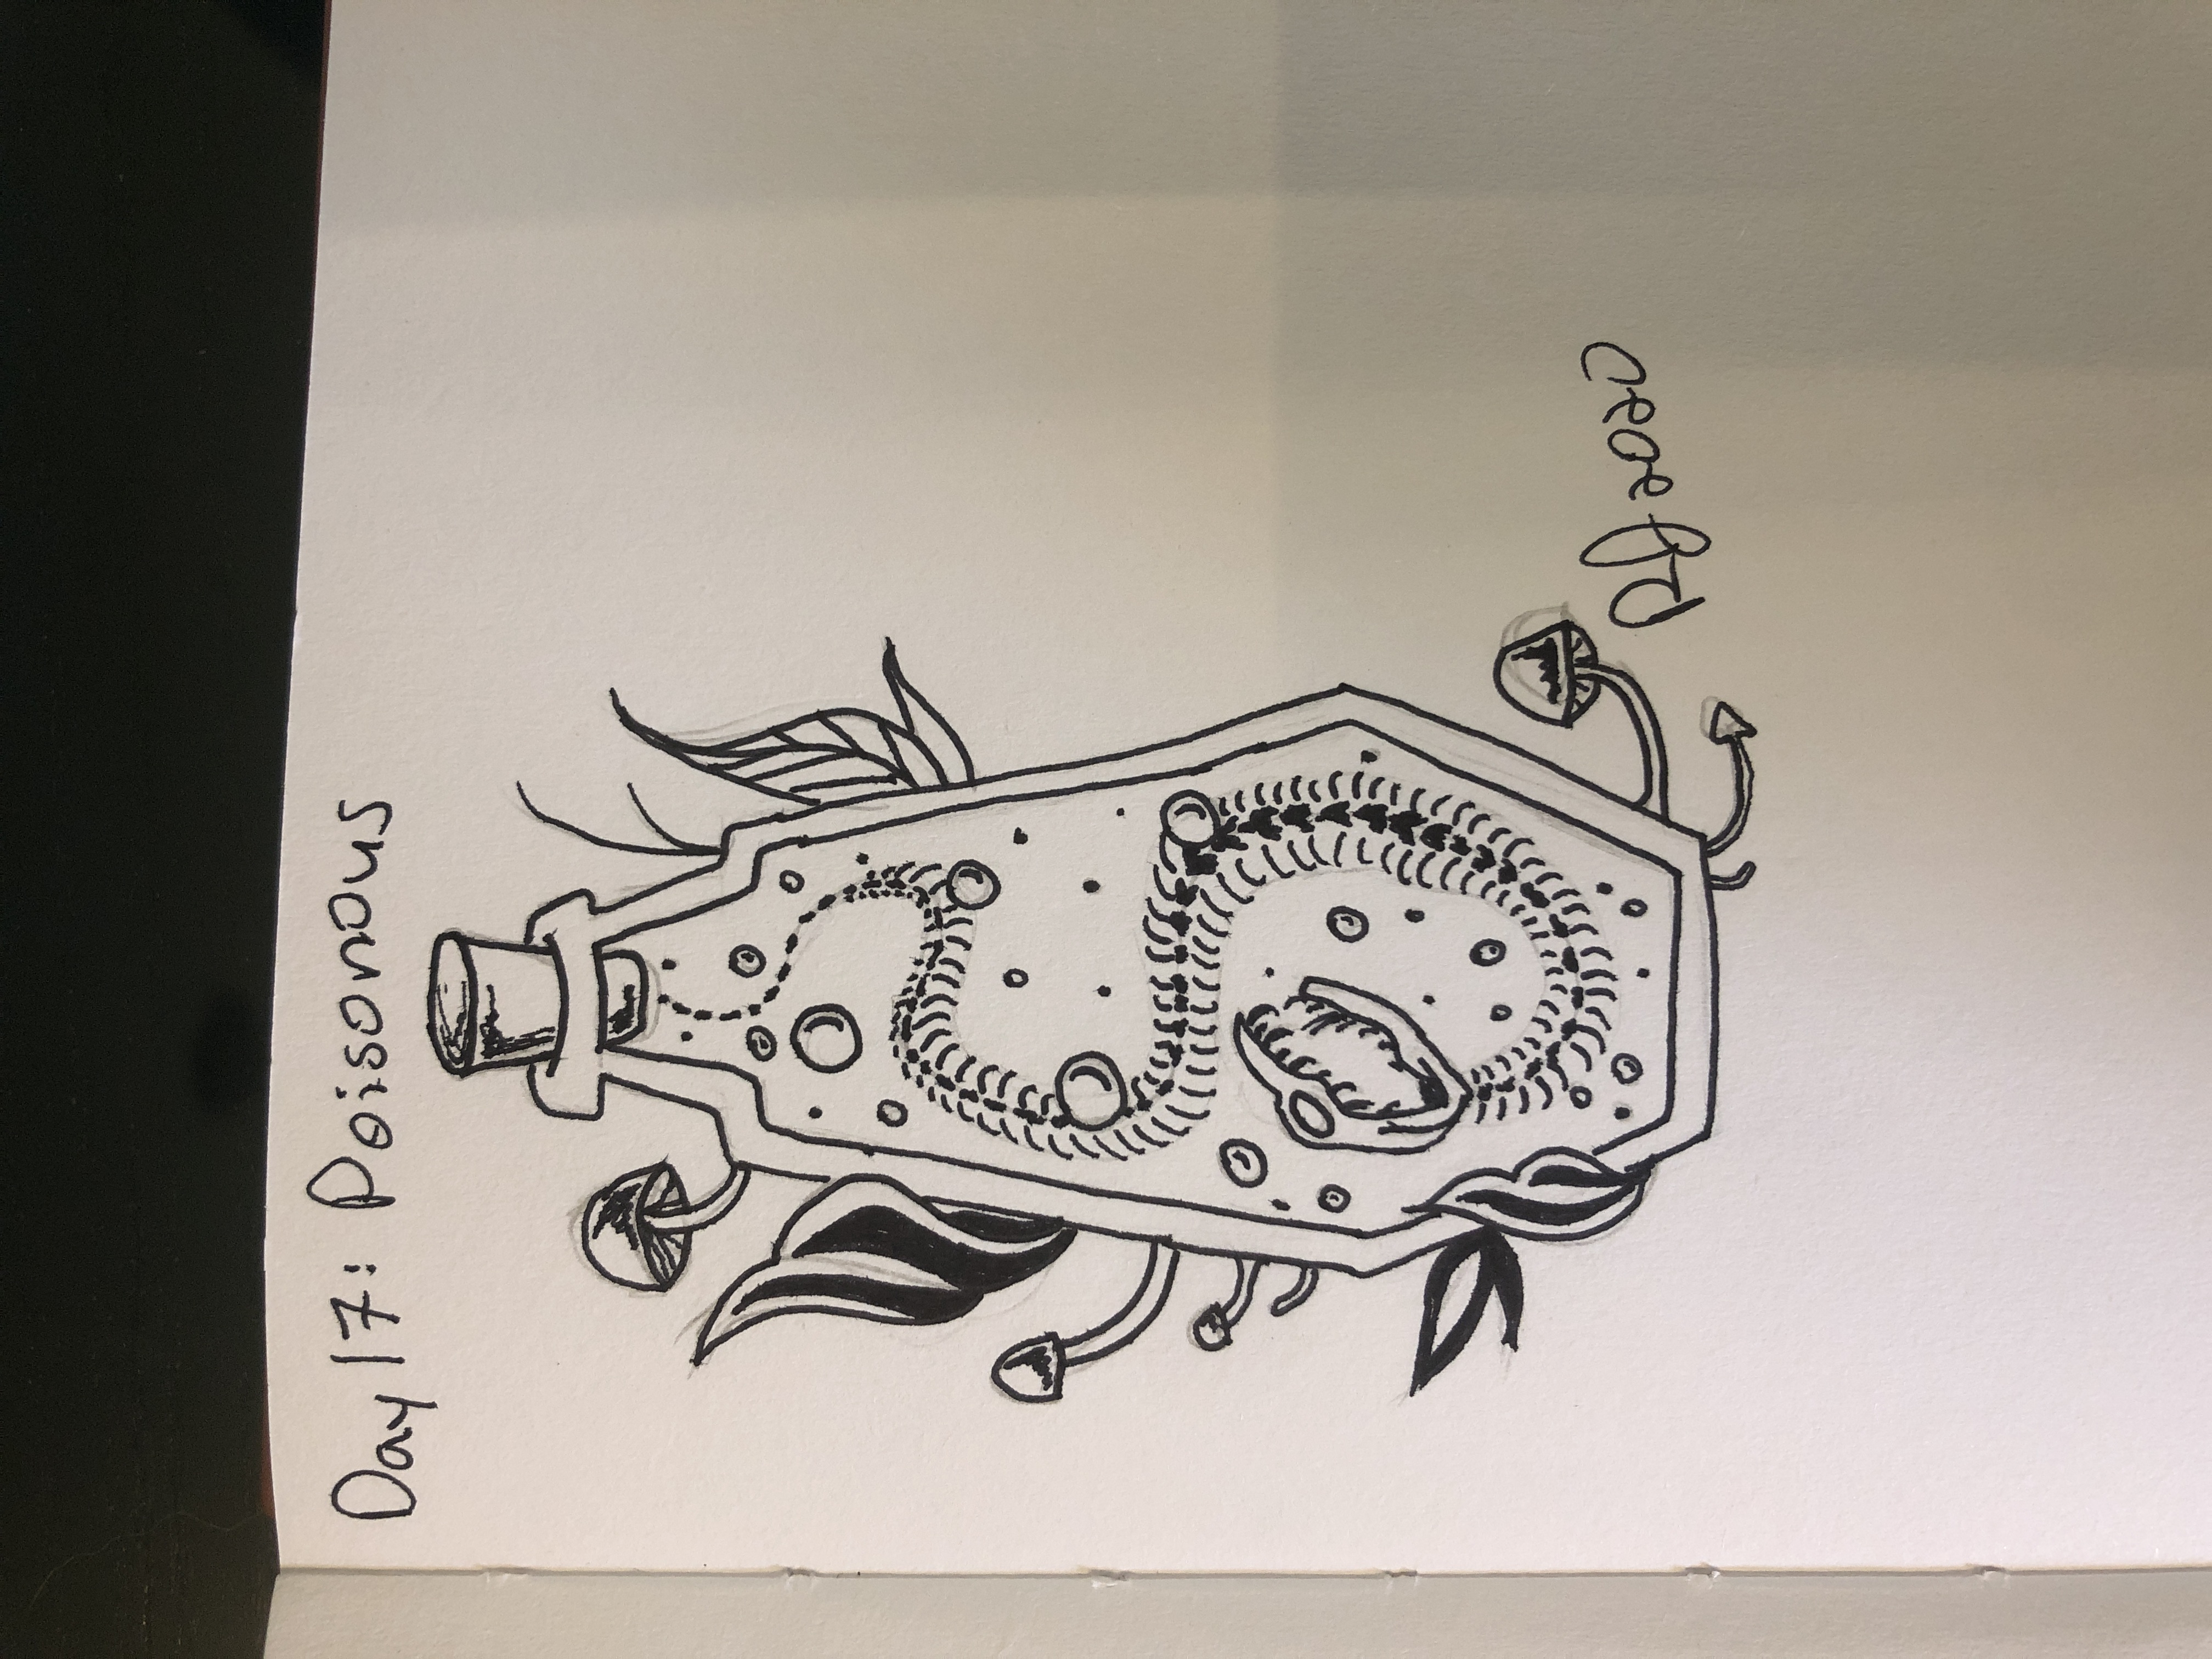 Day 17: Poisonous
RJ 2020